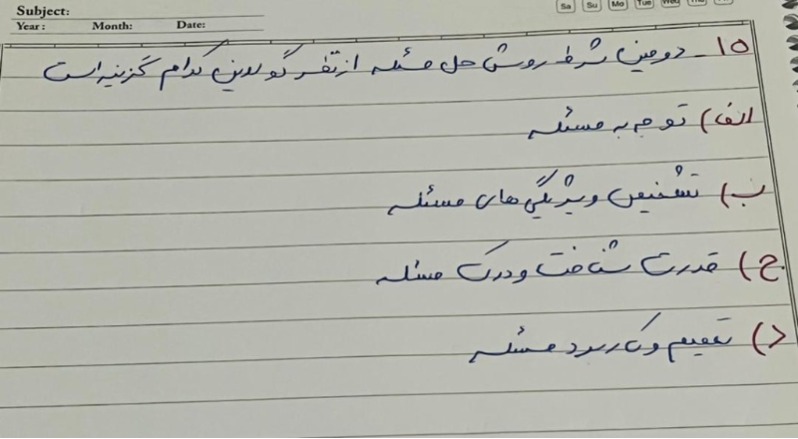 Subject:
Year: Month: Date:
Sa Su Mo Tue Wed Thu
۱۵- دومین شرط روش حل مسئله از نظر گولاین کدام گزینه است
الف) توجه به مسئله
ب) تشخیص ویژگی های مسئله
ج) قدرت شناخت و درک مسئله
د) تعمیم و کاربرد مسئله